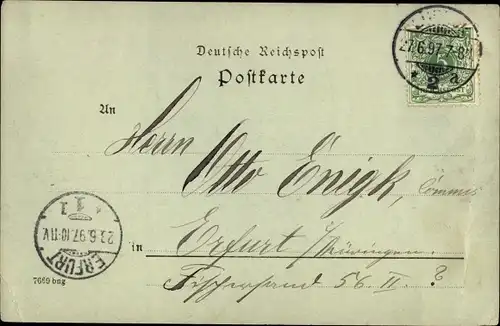 27.6.97.7-8
2 a
5
Deutsche Reichspost
Postkarte
An
Herrn
Otto Enigk,
in Erfurt /Thüringen.
Fischersand 56. II. ?
ERFURT
23.6.97.10-11V
1
7669 bug